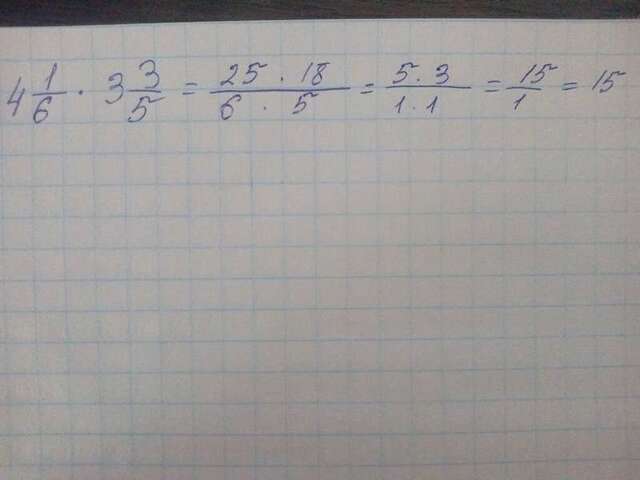 4 1/6 · 3 3/5 = 25 · 18 / 6 · 5 = 5 · 3 / 1 · 1 = 15/1 = 15